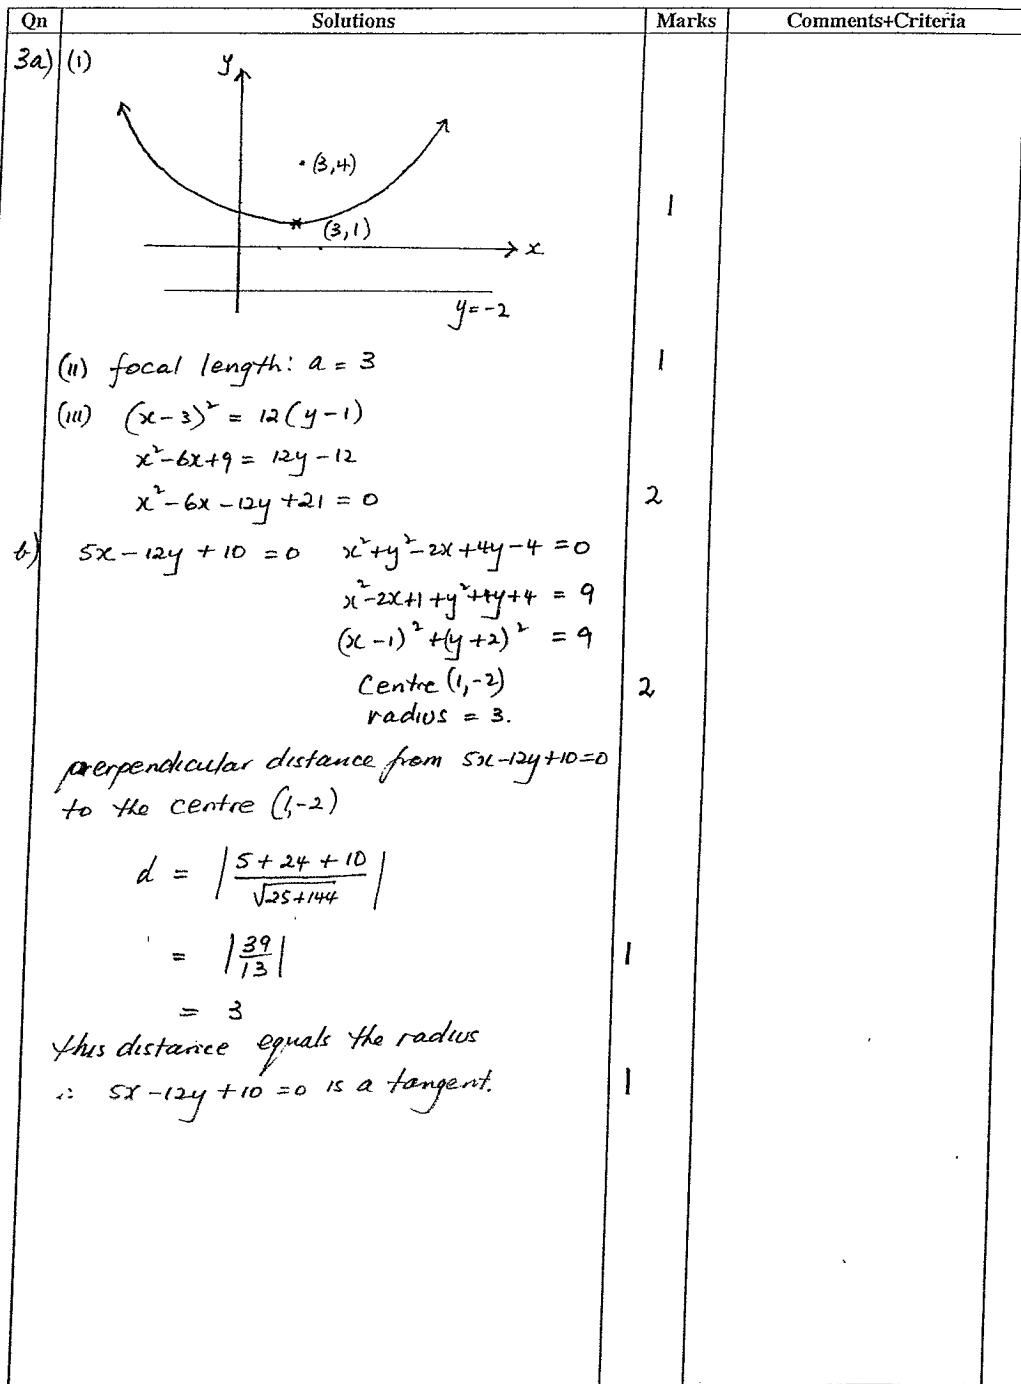 Qn Solutions Marks Comments+Criteria
3a) (i)
y
(3,4)
1
(3,1)
x
y=-2
(ii) focal length: a = 3 1
(iii) (x-3)² = 12(y-1)
x²-6x+9 = 12y-12
x²-6x-12y+21 = 0 2
b) 5x-12y+10 = 0 x²+y²-2x+4y-4 = 0
x²-2x+1+y²+4y+4 = 9
(x-1)²+(y+2)² = 9
Centre (1,-2) 2
radius = 3.
prerpendicular distance from 5x-12y+10=0
to the centre (1,-2)
d = |5+24+10 / √25+144|
= |39/13| 1
= 3
this distance equals the radius
∴ 5x-12y+10=0 is a tangent. 1